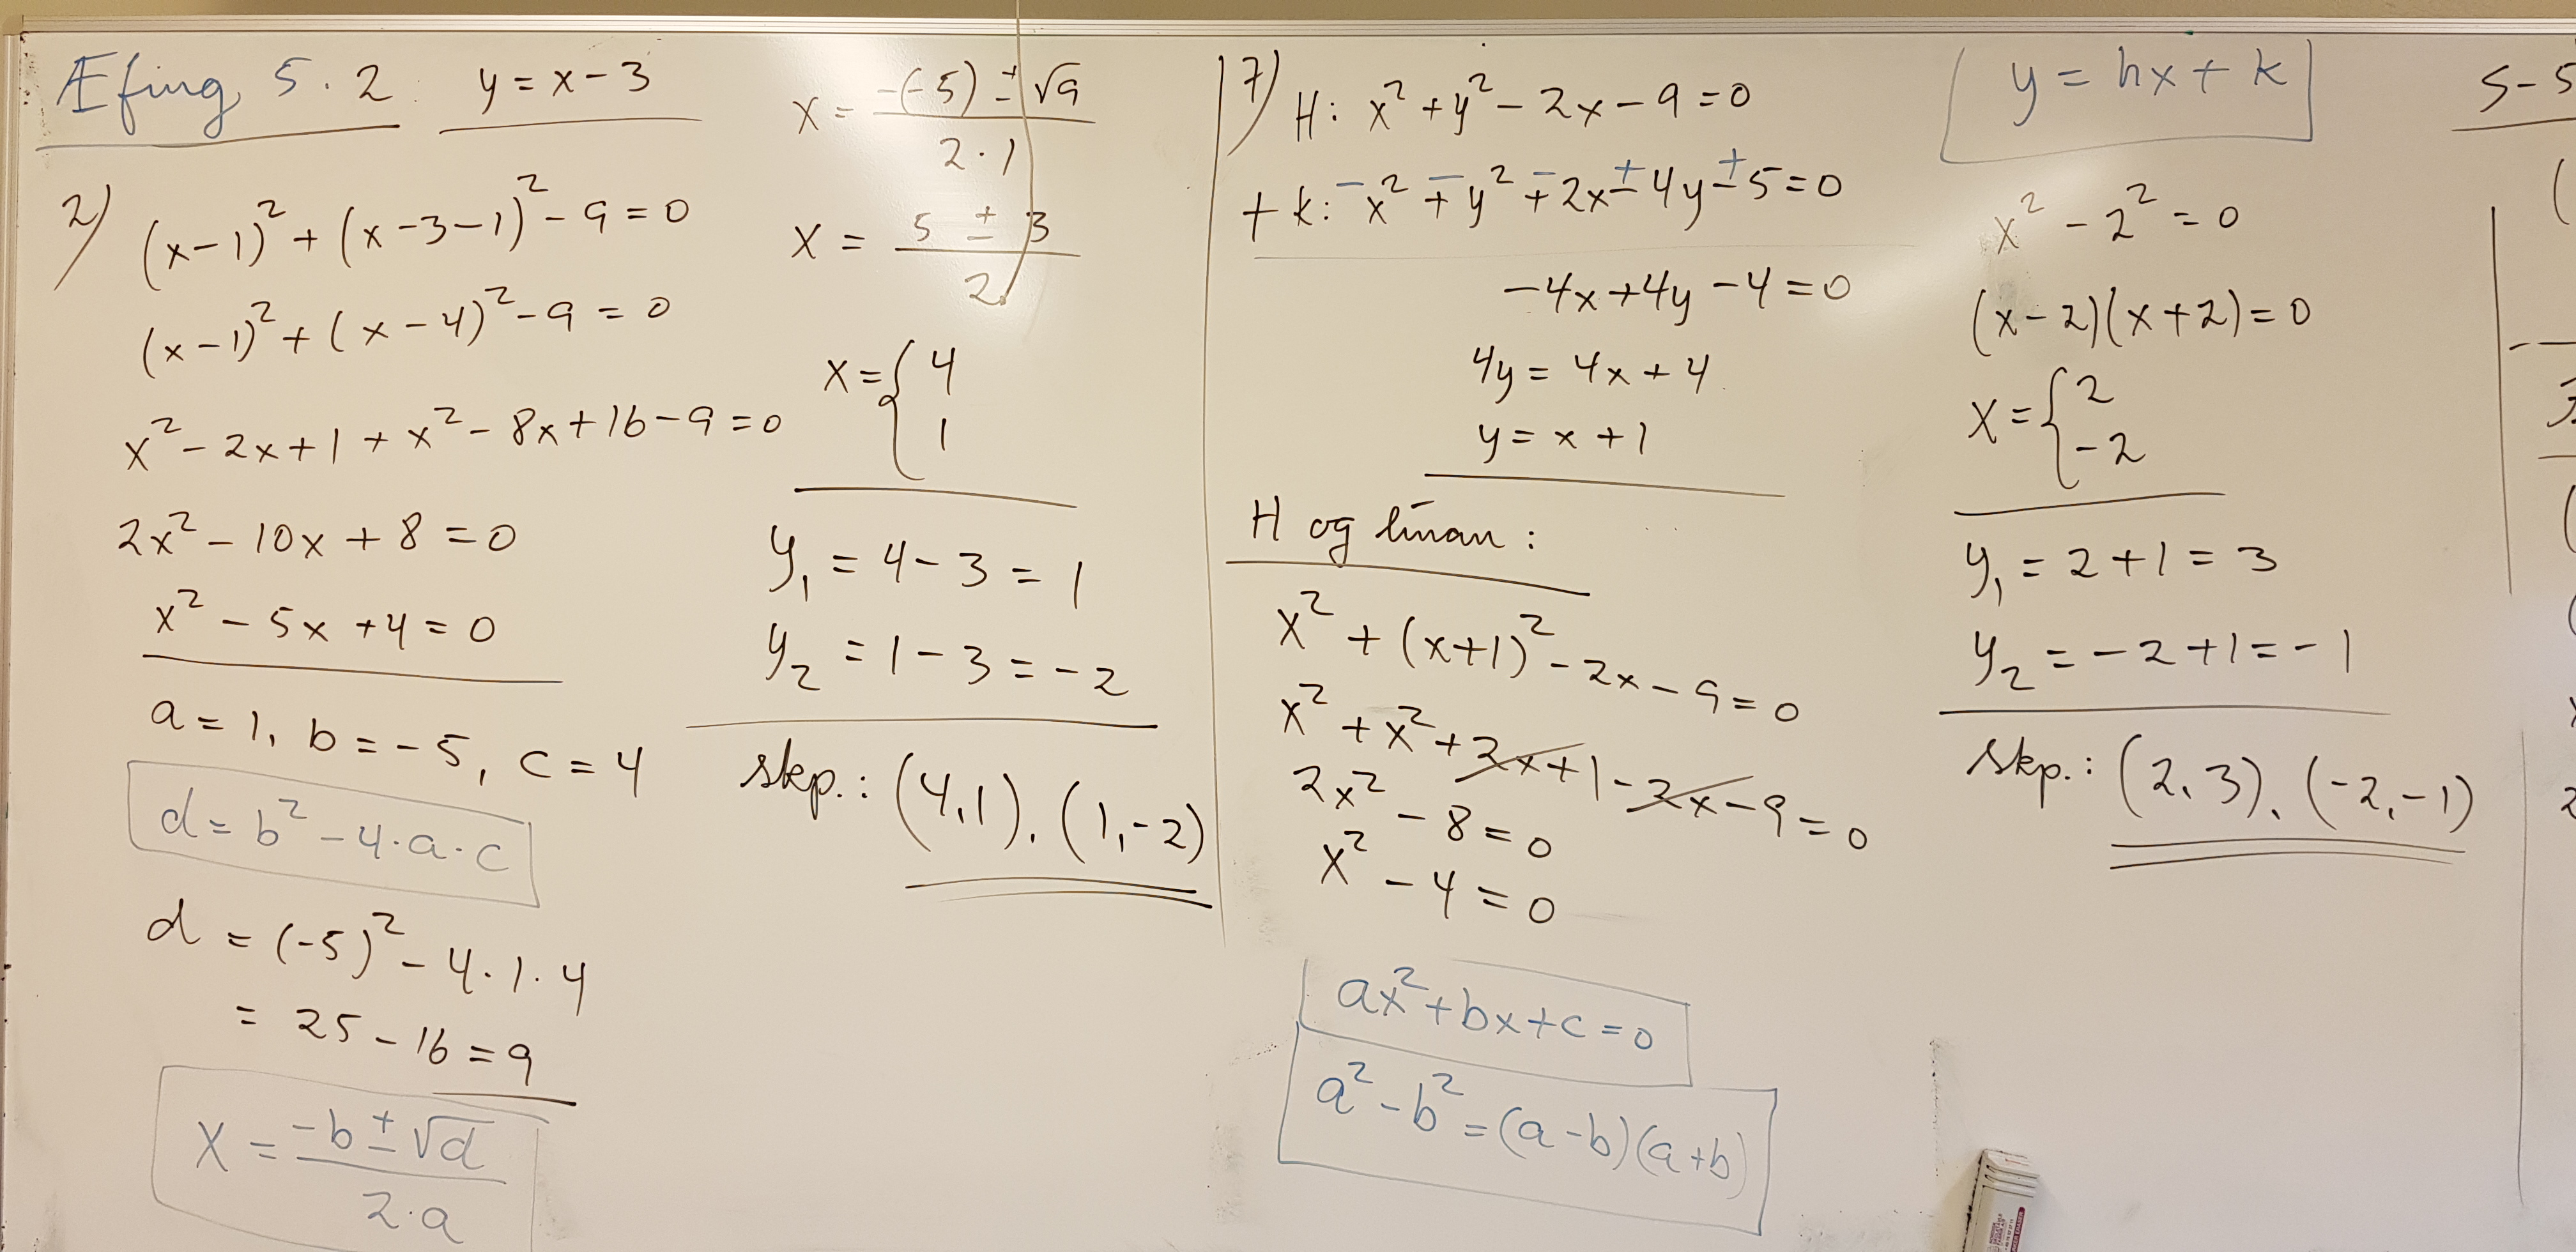 Æfing 5.2
y = x - 3
2)
(x-1)² + (x-3-1)² - 9 = 0
(x-1)² + (x-4)² - 9 = 0
x² - 2x + 1 + x² - 8x + 16 - 9 = 0
2x² - 10x + 8 = 0
x² - 5x + 4 = 0
a = 1, b = -5, c = 4
d = b² - 4·a·c
d = (-5)² - 4·1·4
= 25 - 16 = 9
x = (-b ± √d) / (2·a)
x = (-(-5) ± √9) / (2·1)
x = (5 ± 3) / 2
x = { 4
1
y₁ = 4 - 3 = 1
y₂ = 1 - 3 = -2
skp.: (4,1), (1,-2)
7)
H: x² + y² - 2x - 9 = 0
+ k: -x² ∓ y² ∓ 2x ± 4y ± 5 = 0
-4x + 4y - 4 = 0
4y = 4x + 4
y = x + 1
H og línan:
x² + (x+1)² - 2x - 9 = 0
x² + x² + 2x + 1 - 2x - 9 = 0
2x² - 8 = 0
x² - 4 = 0
ax² + bx + c = 0
a² - b² = (a-b)(a+b)
y = hx + k
x² - 2² = 0
(x-2)(x+2) = 0
x = { 2
-2
y₁ = 2 + 1 = 3
y₂ = -2 + 1 = -1
skp.: (2,3), (-2,-1)
5-5